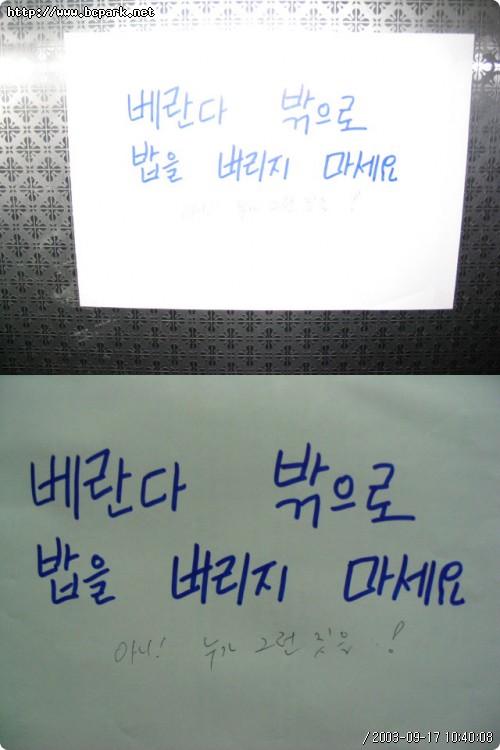 http://www.bcpark.net
베란다 밖으로
밥을 버리지 마세요
아니! 누가 그런 짓을..!
베란다 밖으로
밥을 버리지 마세요
아니! 누가 그런 짓을..!
/2003-09-17 10:40:08